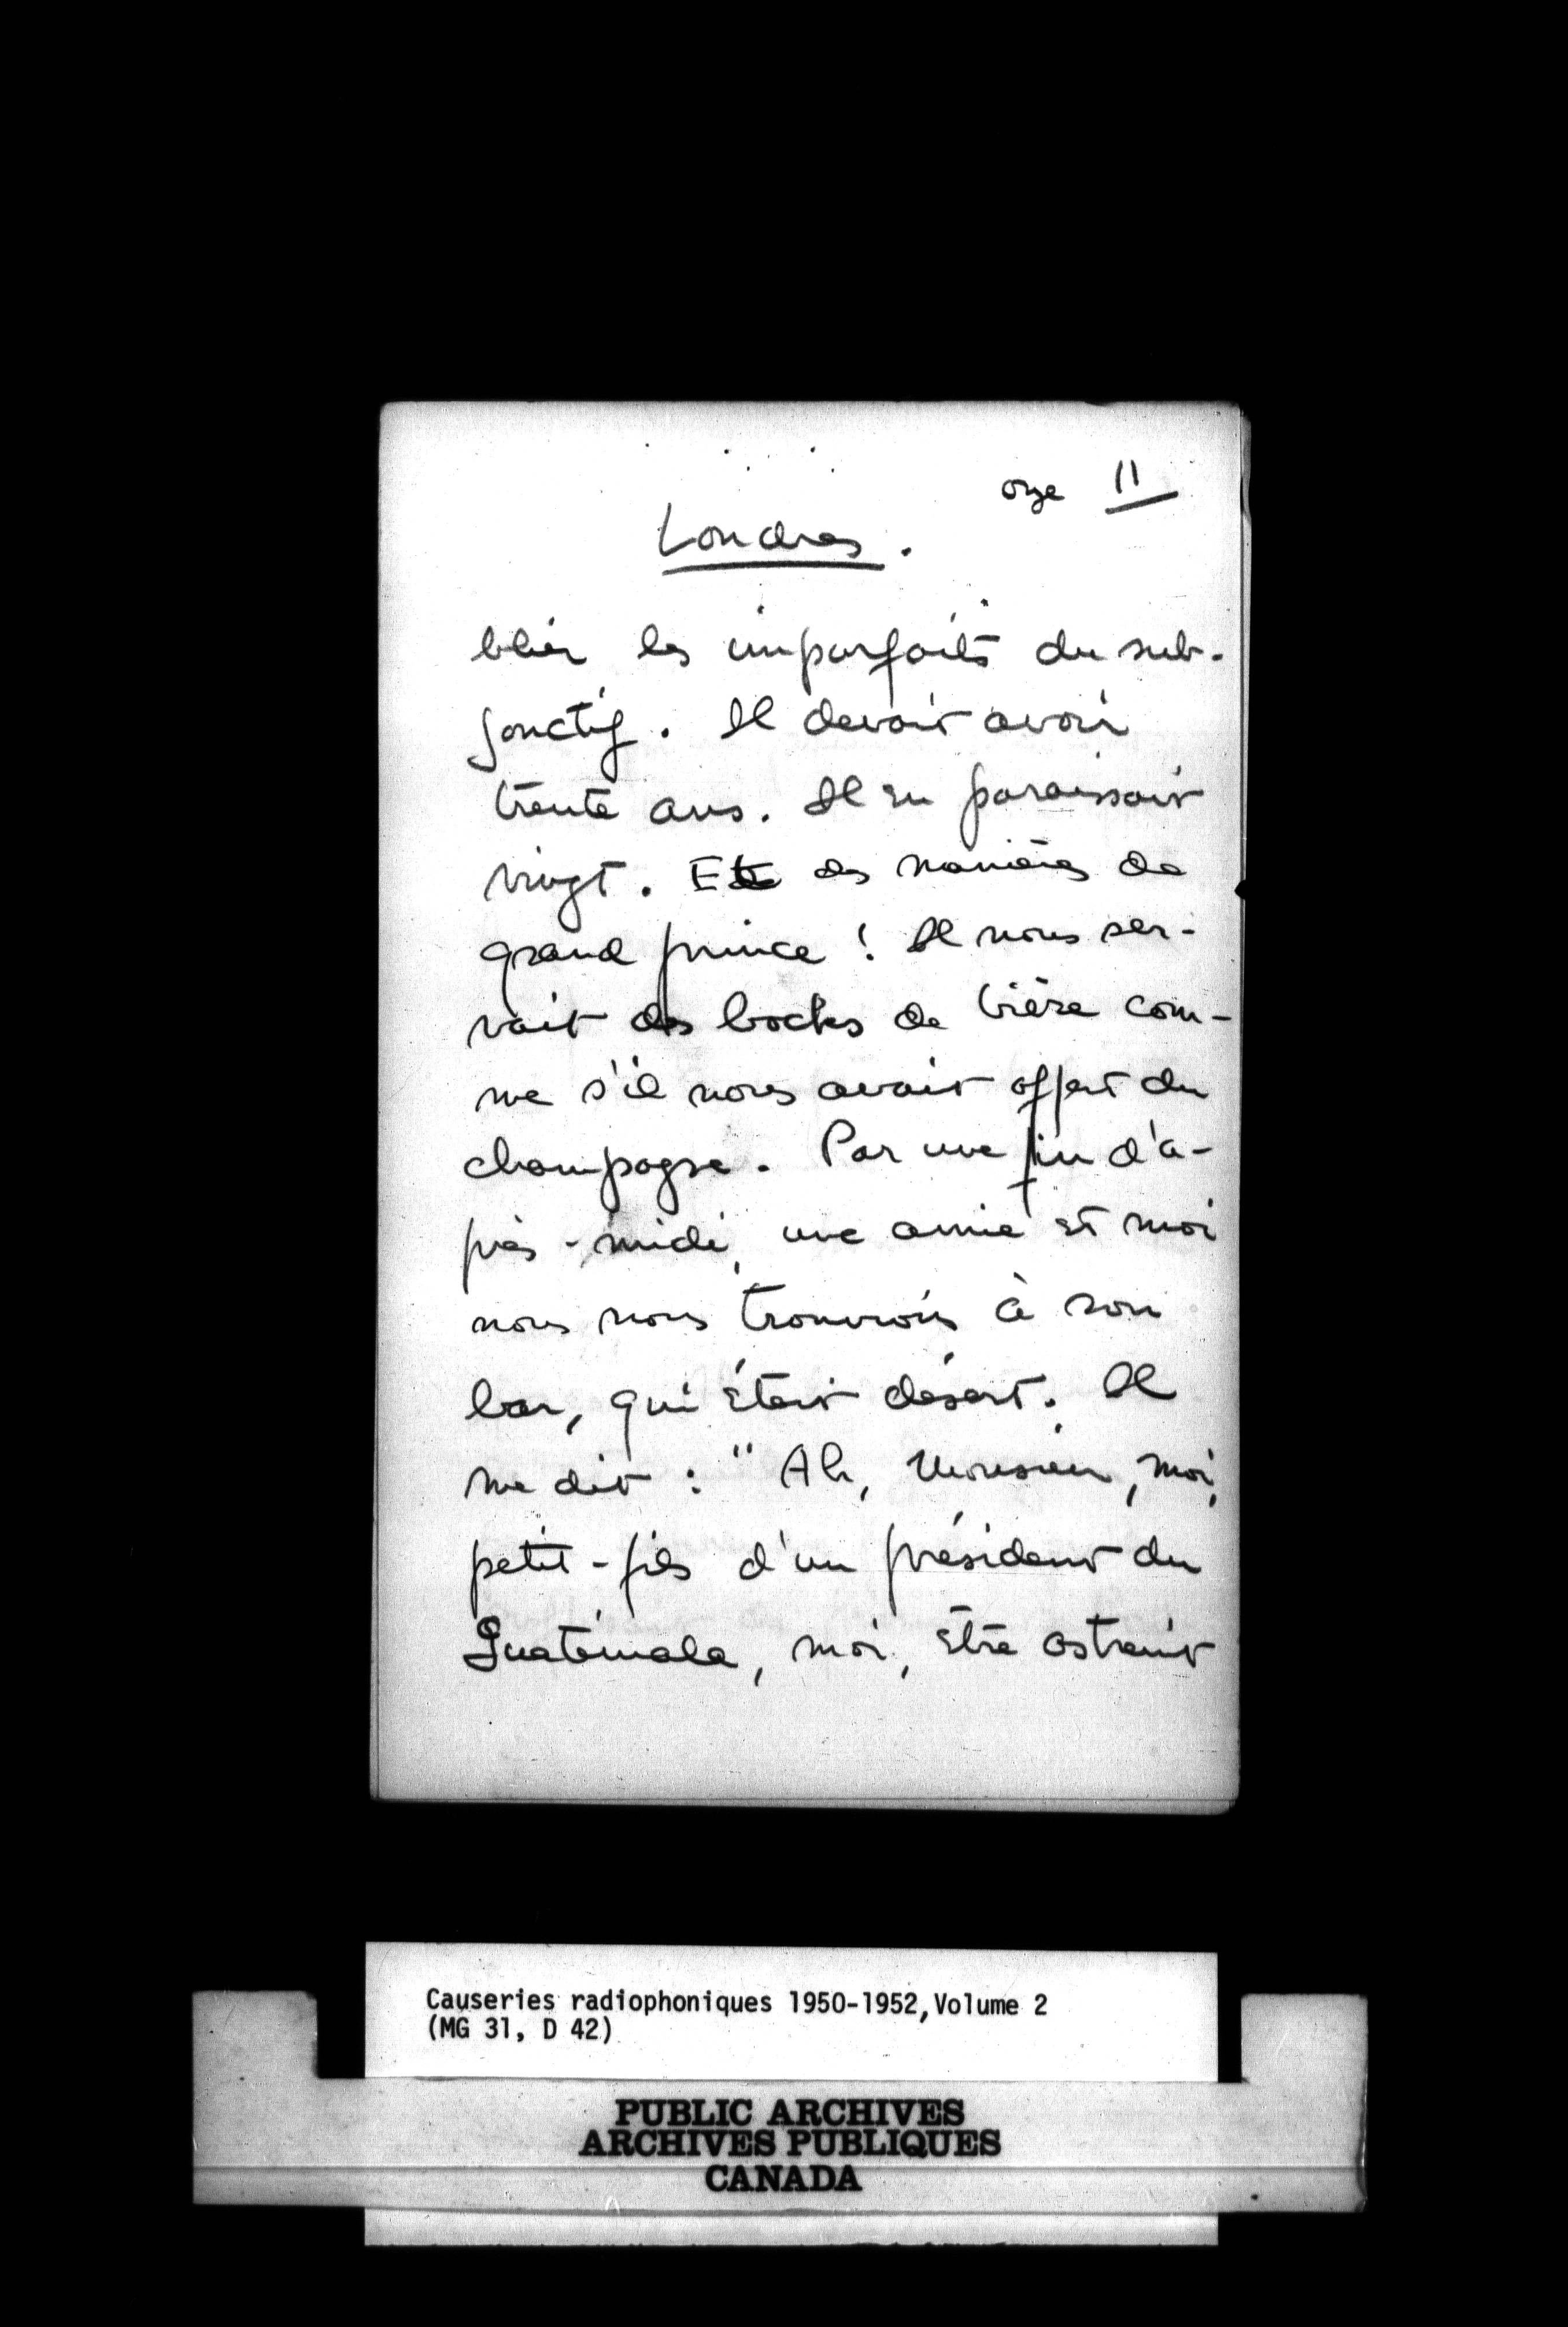 onze 11
Londres.
blier les imparfaits du sub-
jonctif. Il devait avoir
trente ans. Il en paraissait
vingt. Et des manières de
grand prince ! Il nous ser-
vait des bocks de bière com-
me s'il nous avait offert du
champagne. Par une fin d'a-
près-midi, une amie et moi
nous nous trouvions à son
bar, qui était désert. Il
me dit : " Ah, Monsieur, moi,
petit-fils d'un président du
Guatémala, moi, être astreint
Causeries radiophoniques 1950-1952, Volume 2
(MG 31, D 42)
PUBLIC ARCHIVES
ARCHIVES PUBLIQUES
CANADA